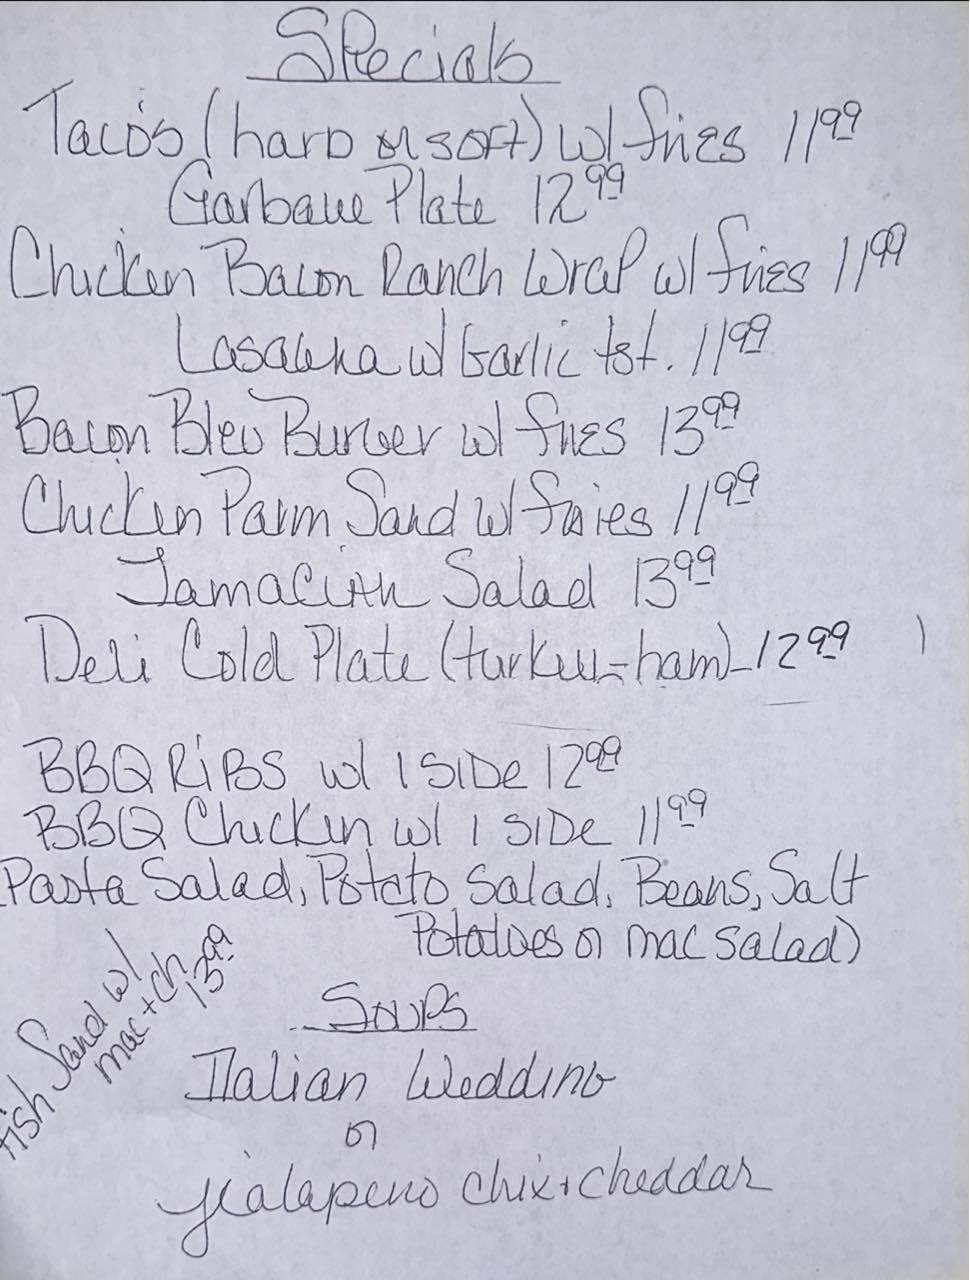 Specials
Taco's (hard or soft) w/ fries 11.99
Garbage Plate 12.99
Chicken Bacon Ranch Wrap w/ fries 11.99
Lasagna w/ Garlic tst. 11.99
Bacon Bleu Burger w/ fries 13.99
Chicken Parm Sand w/ fries 11.99
Jamacian Salad 13.99
Deli Cold Plate (turkey-ham) - 12.99
BBQ Ribs w/ 1 side 12.99
BBQ Chicken w/ 1 side 11.99
Pasta Salad, Potato Salad, Beans, Salt
Potatoes or mac salad)
Fish Sand w/
mac + ch
13.99
Soups
Italian Wedding
or
Jalapeno chix + cheddar